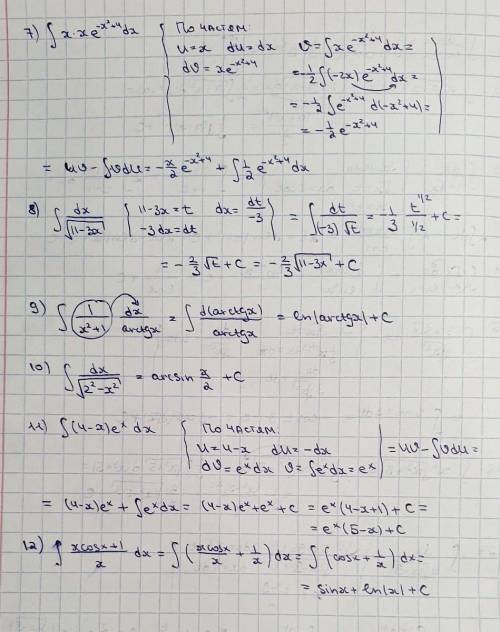 7) ∫ x·xe^(-x²+4) dx { По частям: u=x du=dx dϑ=xe^(-x²+4) ϑ=∫xe^(-x²+4)dx=
=-1/2 ∫(-2x)e^(-x²+4)dx=
=-1/2 ∫e^(-x²+4) d(-x²+4)=
=-1/2 e^(-x²+4)
= uϑ-∫ϑdu=-x/2 e^(-x²+4) + ∫1/2 e^(-x²+4)dx
8) ∫ dx/√(11-3x) { 11-3x=t dx=dt/-3 -3dx=dt } = ∫ dt/((-3)√t) = -1/3 t^(1/2)/(1/2) +C=
= -2/3 √t + C = -2/3 √(11-3x) + C
9) ∫ (1/(x²+1)) dx/arctgx = ∫ d(arctgx)/arctgx = ln|arctgx| + C
10) ∫ dx/√(2²-x²) = arcsin x/2 + C
11) ∫(4-x)e^x dx { По частям: u=4-x du=-dx dϑ=e^x dx ϑ=∫e^x dx=e^x | =uϑ-∫ϑdu=
= (4-x)e^x + ∫e^x dx = (4-x)e^x + e^x + C = e^x(4-x+1) + C =
= e^x(5-x)+C
12) ∫ (xcosx+1)/x dx = ∫(xcosx/x + 1/x)dx = ∫(cosx + 1/x)dx=
= sinx + ln|x| + C